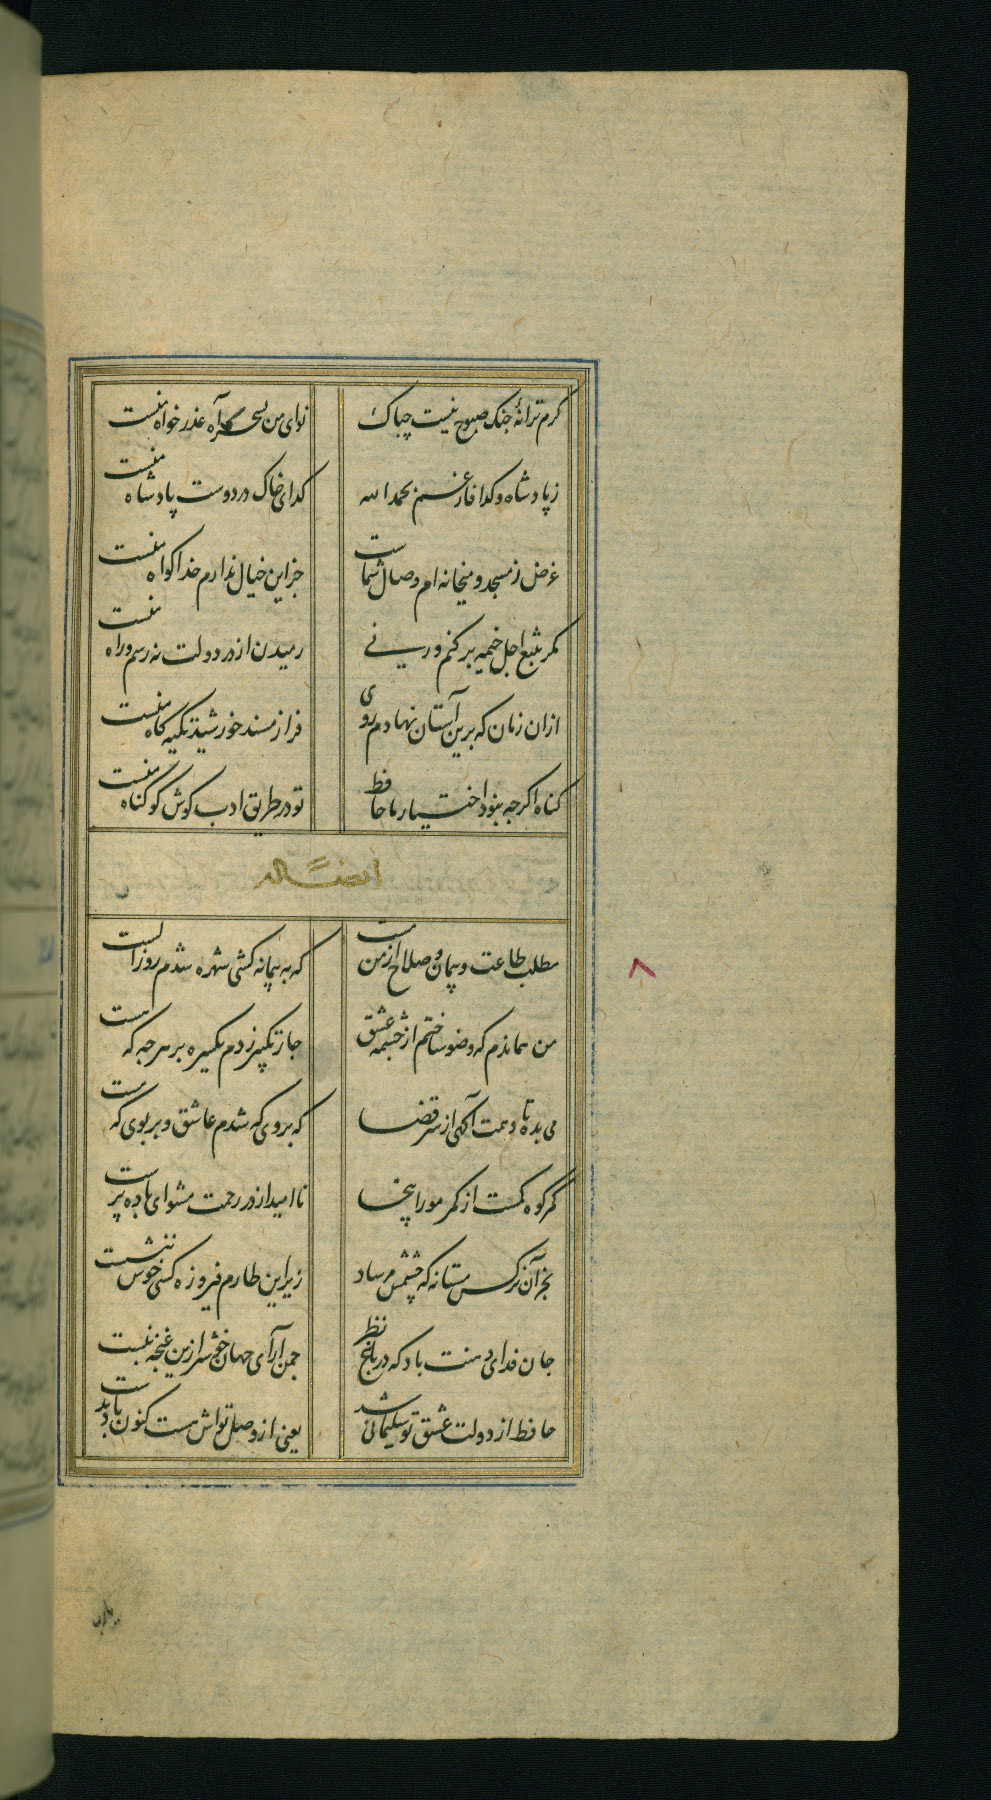 کرم ترانهٔ جنک صبوح نیست چباک
نوای من بسحر آه عذر خواه منست
زپادشاه و کدا فارغم بحمد الله
کدای خاک در دوست پادشاه منست
غرض ز مسجد و میخانه ام وصال شماست
جز این خیال ندارم خدا کواه منست
مکر بتیغ اجل خیمه بر کنم ور نی
رمیدن از در دولت نه رسم و راه منست
ازان زمان که برین آستان نهادم روی
فراز مسند خورشید تکیه کاه منست
کناه اکرجه نبود اختیار ما حافظ
تو در طریق ادب کوش کو کناه منست
ایضًا له
مطلب طاعت و پیمان و صلاح از من مست
که به پیمانه کشی شهره شدم روز الست
من هماندم که وضو ساختم از چشمه عشق
جار تکبیر زدم یکسره بر هرجه که هست
می بده تا دهمت آکهی از سر قضا
که بروی که شدم عاشق و بر بوی که مست
کمر کوه کمست از کمر مور اینجا
ناامید از در رحمت مشو ای باده پرست
بجز آن نرکس مستانه که چشمش مرساد
زیر این طارم فیروزه کسی خوش ننشست
جان فدای دهنت باد که در باغ نظر
جمن آرای جهان خوشتر ازین غنچه نبست
حافظ از دولت عشق تو سلیمانی شد
یعنی از وصل تواش هست کنون باد بدست
۸